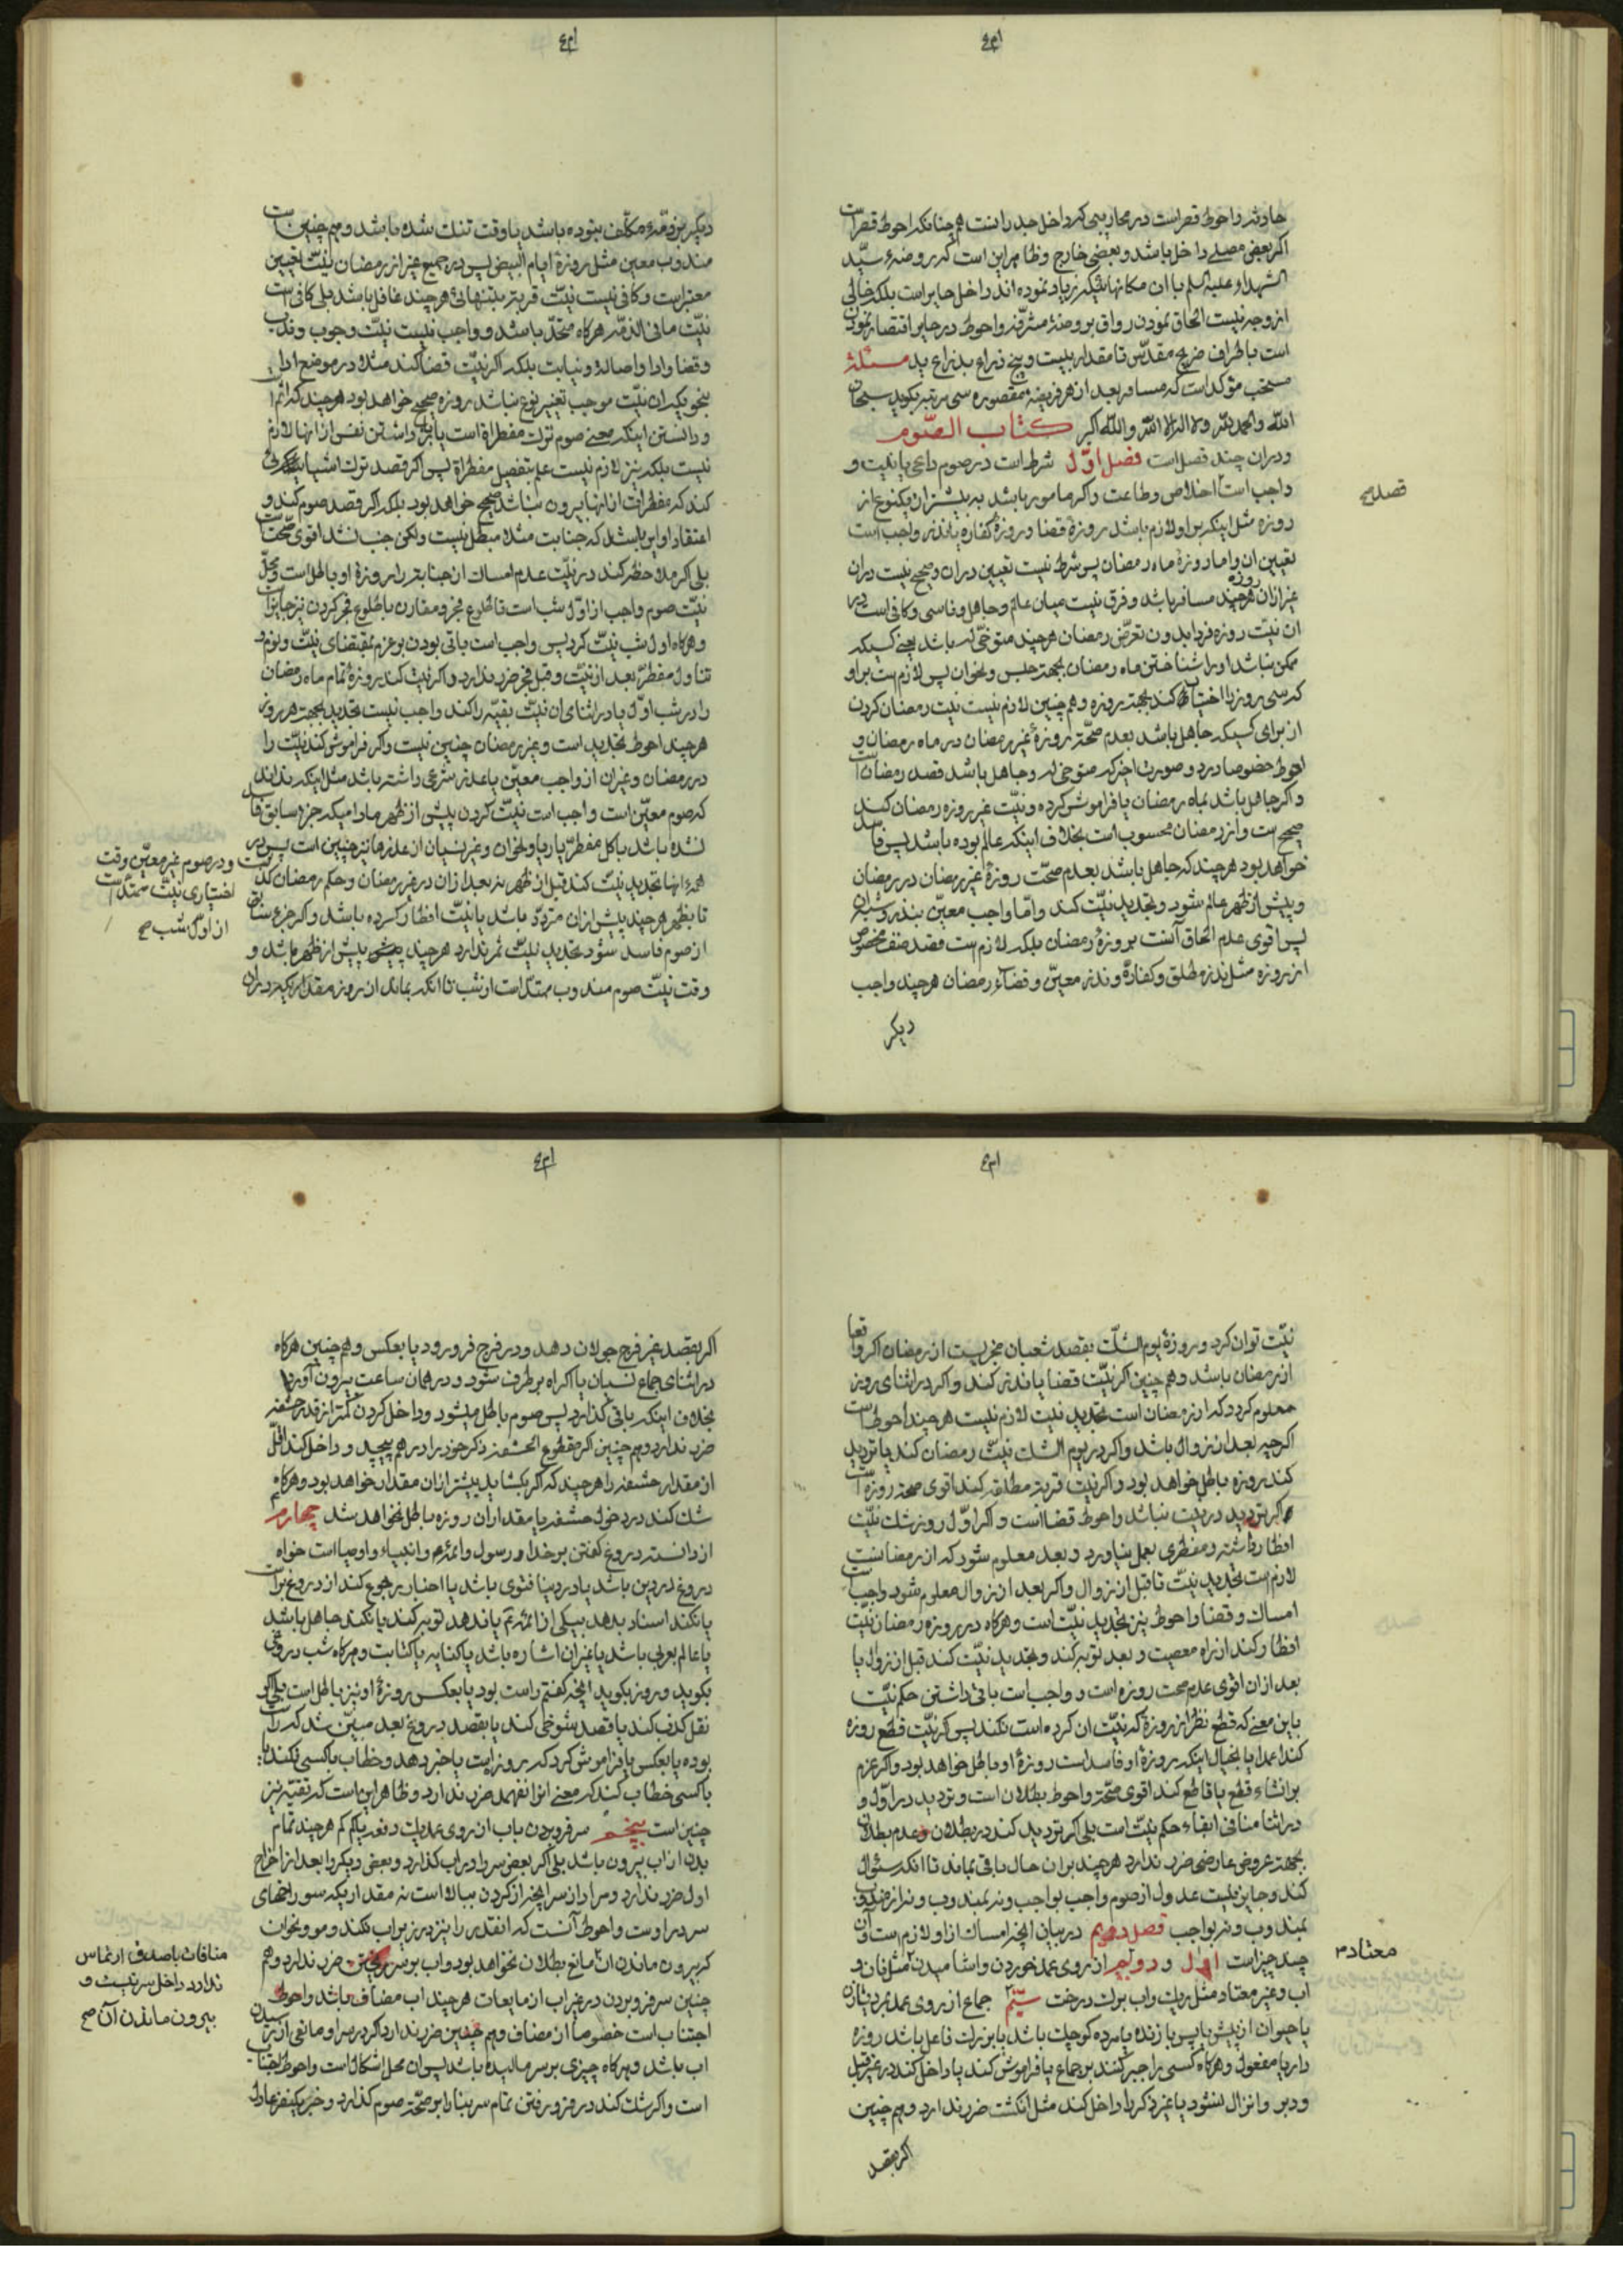 حادثه واحوط قصر است در محاریبی که داخل جدرانست هم چنانکه احوط قصر است
اکر بعض مصلے داخل باشد و بعضی خارج و ظاهر این است که روضهٔ سیّد
الشهداء علیه السلم با ان مکانها که زیاد نموده اند داخل حایر است بلکه خالی
از وجه نیست الحاق نمودن رواق بروضهٔ مشرّفه واحوط در حایر اقتصار نمودن
است باطراف ضریح مقدّس تا مقدار بیست و پنج ذراع بذراع ید مسئلة
مستحب مؤکد است که مسافر بعد از هر فریضهٔ مقصوره سی مرتبه بکوید سبحان
الله والحمد لله ولا اله الا الله والله اکبر کتاب الصّوم
ودران چند فصل است فصل اوّل شرط است در صوم داعی یا نیت و
واجب است اخلاص وطاعت واکر مامور باشد به بیشتر از یکنوع از
روزه مثل اینکه بر او لازم باشد روزهٔ قضا و روزهٔ کفاره یا نذر واجب است
تعیین ان واما روزهٔ ماه رمضان پس شرط نیست تعیین دران وصحیح نیست دران
غیر ازان روزه هر چند مسافر باشد وفرق نیست میان عالم وجاهل وناسی وکافی است در
ان نیّت روزه فردا بدون تعرّض رمضان هر چند متوخّی له باشد یعنی کسیکه
ممکن نباشد او را شناختن ماه رمضان بجهة حبس ونحو ان پس لازم است بر او
که سی روز را اختیار کند بجهة روزه وهم چنین لازم نیست نیت رمضان کردن
از برای کسیکه جاهل باشد بعدم صحّة روزهٔ غیر رمضان در ماه رمضان و
احوط خصوصا در دو صورت اخر که متوخی له وجاهل باشد قصد رمضان است
واکر جاهل باشد بماه رمضان یا فراموش کرده ونیّت غیر روزه رمضان کند
صحیح است واز رمضان محسوب است بخلاف اینکه عالم بوده باشد پس فاسد
خواهد بود هر چند که جاهل باشد بعدم صحّت روزهٔ غیر رمضان در رمضان
وپیش از ظهر عالم شود وتجدید نیّت کند وامّا واجب معیّن بنذر وشبه ان
پس اقوی عدم الحاق آنست بروزهٔ رمضان بلکه لازم است قصد صنف مخصوص
از روزه مثل نذر مطلق وکفارة ونذر معیّن وقضآء رمضان هر چند واجب
دیکر
قصد صح
دیکر بر ذمّهٔ مکلّف نبوده باشد یا وقت تنك شده باشد وهم چنین است
مندوب معین مثل روزهٔ ایام البیض پس در جمیع غیر از رمضان نیّت تعیین
معتبر است وکافی نیست نیّت قربة بتنهائی هر چند غافل باشد بلی کافی است
نیّت ما فی الذمّه هرکاه متّحد باشد وواجب نیست نیّت وجوب وندب
وقضا وادا واصاله ونیابت بلکه اکر نیّت قضا کند مثلا در موضع ادا
بنحویکه ان نیّت موجب تغییر نوع نباشد روزه صحیح خواهد بود هر چند که اثم
ودانستن اینکه معنی صوم ترك مفطرات است یا باز داشتن نفس از انها لازم
نیست بلکه نیز لازم نیست علم بتفصیل مفطراة پس اکر قصد ترك اشیائی
کند که مفطرات از انها بیرون نباشد صحیح خواهد بود بلکه اکر قصد صوم کند و
اعتقاد او این باشد که جنابت مثلا مبطل نیست ولکن جنب نشد اقوی صحّت است
بلی اکر ملاحظه کند در نیّت عدم امساك از جنابت را روزهٔ او باطل است ومحلّ
نیّت صوم واجب از اوّل شب است تا طلوع فجر ومقارن با طلوع فجر کردن نیز جایز است
وهرکاه اول شب نیّت کرد پس واجب است باقی بودن بر عزم بمقتضای نیّت ونوم و
تناول مفطر بعد از نیّت وقبل فجر ضرر ندارد واکر نیت کند روزهٔ تمام ماه رمضان
را در شب اوّل یا در اثنای ان نیّت بقیّه را کند واجب نیست تجدید بجهة هر روز
هر چند احوط تجدید است وغیر رمضان چنین نیست واکر فراموش کند نیّت را
در رمضان وغیر ان از واجب معیّن یا عذر شرعی داشته باشد مثل اینکه نداند
که صوم معیّن است واجب است نیّت کردن پیش از ظهر مادامیکه جزء سابق فاسد
نشده باشد باکل مفطر یا ریا ونحو ان وغیر نسیان از عذرها نیز چنین است پس در
همهٔ انها تجدید نیّت کند قبل از ظهر نه بعد ازان در غیر رمضان وحکم رمضان کذشت
تا بظهر هر چند پیش ازان متردّد باشد یا نیّت افطار کرده باشد واکر جزء سابق
از صوم فاسد شود تجدید نیّت ثمر ندارد هر چند پیش از ظهر باشد و
وقت نیّت صوم مندوب ممتد است از شب تا انکه بماند از روز مقداریکه دران
ودر صوم غیر معیّن وقت
اختیاری نیّت ممتد است
از اوّل شب صح
نیّت توان کرد وروزهٔ یوم الشّك بقصد شعبان مجزیست از رمضان اکر واقعا
از رمضان باشد وهم چنین اکر نیّت قضا یا نذر کند واکر در اثنای روز
معلوم کردد که از رمضان است تجدید نیت لازم نیست هر چند احوط است
اکرچه بعد از زوال باشد واکر در یوم الشك نیّت رمضان کند یا تردید
کند روزه باطل خواهد بود واکر نیّت قربة مطلقه کند اقوی صحة روزه است
اکر تردید در نیت نباشد واحوط قضا است واکر اوّل روز شك نیّت
افطار داشته ومفطری بعمل نیاورد وبعد معلوم شود که از رمضانست
لازم است تجدید نیّت تا قبل از زوال واکر بعد از زوال معلوم شود واجب است
امساك وقضا واحوط نیز تجدید نیّت است وهرکاه در روزه رمضان نیّت
افطار کند از راه معصیت وبعد توبه کند وتجدید نیّت کند قبل از زوال یا
بعد ازان اقوی عدم صحت روزه است وواجب است باقی داشتن حکم نیّت
باین معنی که قطع نظر از روزهٔ که نیّت ان کرده است نکند پس اکر نیّت قطع روزه
کند عمدا یا بخیال اینکه روزهٔ او فاسد است روزهٔ او باطل خواهد بود واکر عزم
بر انشاء قطع یا قاطع کند اقوی صحّة واحوط بطلان است وتردید در اوّل و
در اثنا منافی ابقاء حکم نیّت است بلی اکر تردید کند در بطلان وعدم بطلان
بجهت عروض عارضی ضرر ندارد هر چند بر ان حال باقی بماند تا انکه سئوال
کند وجایز نیست عدول از صوم واجب بواجب ونه بمندوب ونه از مندوب
بمندوب ونه بواجب فصل دویم در بیان انچه امساك از او لازم است وان
چند چیز است اوّل ودویم از روی عمد خوردن واشامیدن مثل نان و
اب وغیر معتاد مثل ریك واب برك درخت سیّم جماع از روی عمد بمرد یا زن
یا حیوان از پیش یا پس یا زنده یا مرده کوچك باشد یا بزرك فاعل باشد روزه
دار یا مفعول وهرکاه کسی را جبر کنند بر جماع یا فراموش کند یا داخل کند در غیر قبل
ودبر وانزال نشود یا غیر ذکر را داخل کند مثل انکشت ضرر ندارد وهم چنین
اکر بقصد
معتاد م
اکر بقصد غیر فرج جولان دهد ودر فرج فرو رود یا بعکس وهم چنین هرکاه
در اثنای جماع نسیان یا اکراه بر طرف شود ودر همان ساعت بیرون آورد
بخلاف اینکه باقی کذارد پس صوم باطل میشود وداخل کردن کمتر از قدر حشفه
ضرر ندارد وهم چنین اکر مقطوع الحشفه ذکر خود را درهم پیچد وداخل کند اقلّ
از مقدار حشفه را هر چند که اکر بکشاید بیشتر ازان مقدار خواهد بود وهرکاه
شك کند در دخول حشفه یا مقدار ان روزه باطل نخواهد شد چهارم
از دانسته دروغ کفتن بر خدا ورسول وائمه وانبیاء واوصیا است خواه
دروغ در دین باشد یا در دنیا فتوی باشد یا اخبار رجوع کند از دروغ
یا نکند اسناد بدهد بیکی از ائمه یا ندهد توبه کند یا نکند جاهل باشد
یا عالم بعربی باشد یا غیر ان اشاره باشد یا کنایه یا کتابت وهرکاه شب دروغی
بکوید وروز بکوید انچه کفتم راست بود یا بعکس روزهٔ او نیز باطل است بلی اکر
نقل کذب کند یا قصد شوخی کند یا بقصد دروغ بعد مبیّن شد که راست
بوده یا بعکس یا فراموش کرد که روزه است یا خبر دهد وخطاب با کسی نکند یا
با کسی خطاب کند که معنی انرا نفهمد ضرر ندارد وظاهر این است که تقیّه نیز
چنین است پنجم سر فرو بردن باب از روی عمد یك دفعه یا کم کم هر چند تمام
بدن از اب بیرون باشد بلی اکر بعض سر را در اب کذارد وبعض دیکر را بعد از اخراج
اول ضرر ندارد ومراد از سر انچه از کردن ببالا است نه مقداریکه سوراخهای
سر در اوست واحوط آنست که انقدر را نیز در زیر اب نکند ومو ونحو ان
که بیرون ماندن ان مانع بطلان نخواهد بود واب بر سر ریختن ضرر ندارد وهم
چنین سر فرو بردن در غیر اب از مایعات هر چند اب مضاف باشد واحوط
اجتناب است خصوصا از مضاف وهم چنین ضرر ندارد اکر در سر او مانعی از رسیدن
اب باشد وهرکاه چیزی بر سر مالیده باشد پس ان محل اشکال است واحوط اجتناب
است واکر شك کند در فرو رفتن تمام سر بنا را بر صحّة صوم کذارد وخبر یکنفر عادل
منافات با صدق ارتماس
ندارد داخل سر نیست و
بیرون ماندن آن صح